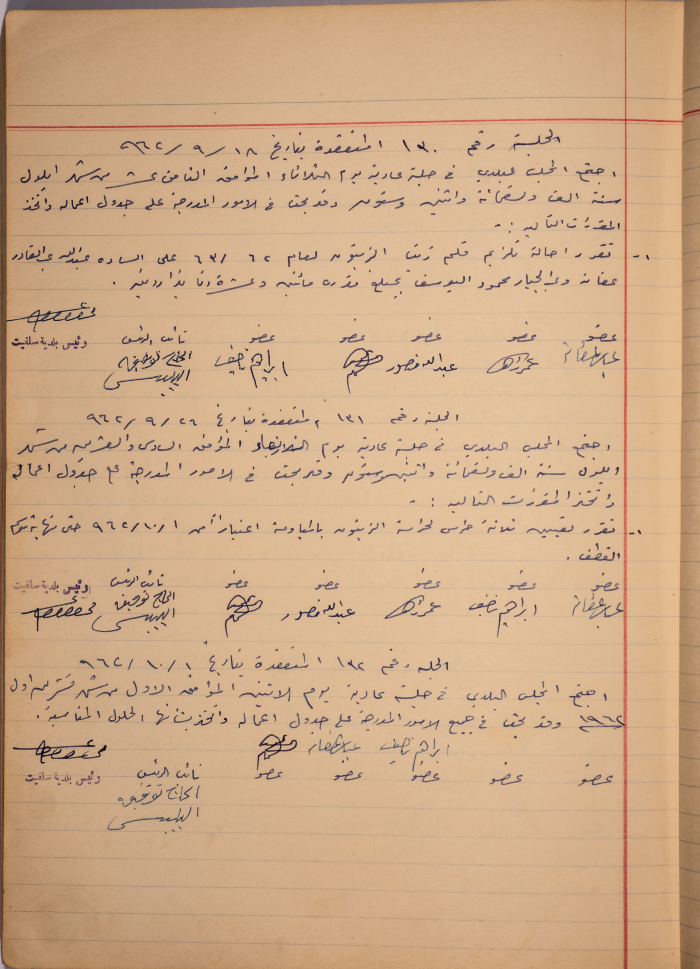 الجلسة رقم ١٣٠ المنعقدة بتاريخ ١٨ / ٩ / ٩٦٢
اجتمع المجلس البلدي في جلسة عادية يوم الثلاثاء الموافق الثامن عشر من شهر ايلول
سنة الف وتسعمائة واثنين وستون وقد بحث في الامور المدرجة على جدول اعماله واتخذ
المقررات التاليه :-
١- تقرر احالة تلزيم قلم زيت الزيتون لعام ٦٢ / ٦٣ على الساده عبدالله عبدالقادر
عفانه وعبدالجبار محمود اليوسف بمبلغ قدره مائتين وعشرة دنانير اردنيه .
عضو عضو عضو عضو عضو نائب الرئيس رئيس بلدية سلفيت
عبدالله منصور ابراهيم ناصيف الحاج توفيق
الجلسه رقم ١٣١ المنعقدة بتاريخ ٢٦ / ٩ / ٩٦٢
اجتمع المجلس البلدي في جلسة عادية يوم الموافق السادس والعشرين من شهر
ايلول سنة الف وتسعمائة واثنين وستون وقد بحث في الامور المدرجة على جدول اعماله
واتخذ المقررات التاليه :-
١- تقرر تعيين ثلاثة حرس لحراسة الزيتون بالمياومة اعتباراً من ١ / ١٠ / ٩٦٢ حتى نهاية موسم
القطف .
عضو عضو عضو عضو عضو نائب الرئيس رئيس بلدية سلفيت
ابراهيم ناصيف عبدالله منصور الحاج توفيق
الجلسه رقم ١٣٢ المنعقدة بتاريخ ١ / ١٠ / ٩٦٢
اجتمع المجلس البلدي في جلسة عادية يوم الاثنين الموافق الاول من شهر تشرين اول
١٩٦٢ وقد بحث في جميع الامور المدرجة على جدول اعماله واتخذ بشأنها الحلول المناسبة .
ابراهيم ناصيف
عضو عضو عضو عضو عضو نائب الرئيس رئيس بلدية سلفيت
الحاج توفيق